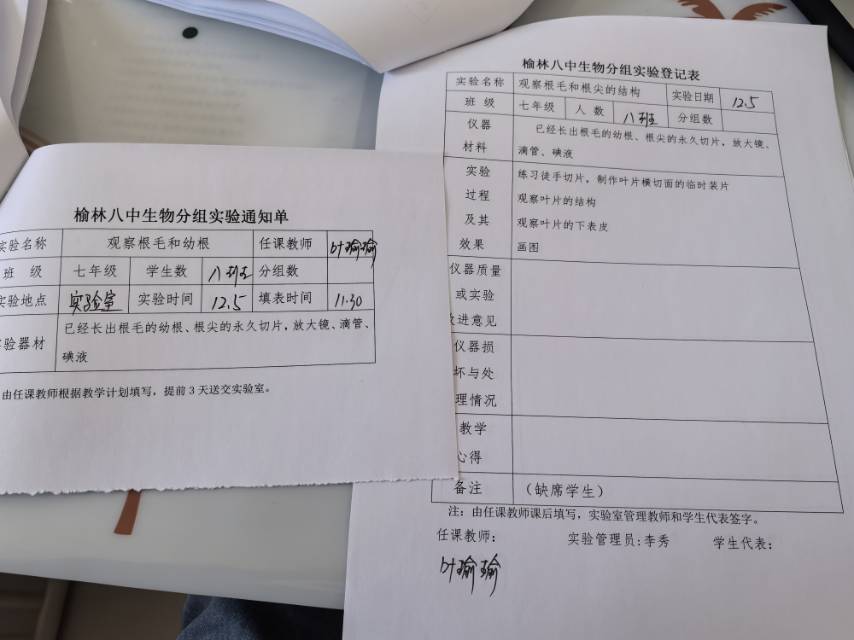 榆林八中生物分组实验通知单
实验名称 观察根毛和幼根 任课教师 叶瑜瑜
班 级 七年级 学生数 八班 分组数
实验地点 实验室 实验时间 12.5 填表时间 11.30
验器材 已经长出根毛的幼根、根尖的永久切片,放大镜、滴管、
碘液
由任课教师根据教学计划填写,提前3天送交实验室。
榆林八中生物分组实验登记表
实验名称 观察根毛和根尖的结构 实验日期 12.5
班 级 七年级 人 数 八班 分组数
仪器 已经长出根毛的幼根、根尖的永久切片,放大镜、
材料 滴管、碘液
实验 练习徒手切片,制作叶片横切面的临时装片
过程 观察叶片的结构
及其 观察叶片的下表皮
效果 画图
仪器质量
或实验
改进意见
仪器损
坏与处
理情况
教学
心得
备注 (缺席学生)
注:由任课教师课后填写,实验室管理教师和学生代表签字。
任课教师: 实验管理员:李秀 学生代表:
叶瑜瑜